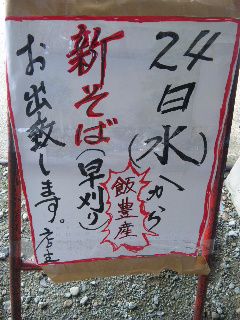 24日(水)から
飯豊産
新そば(早刈り)
お出致します。
店主